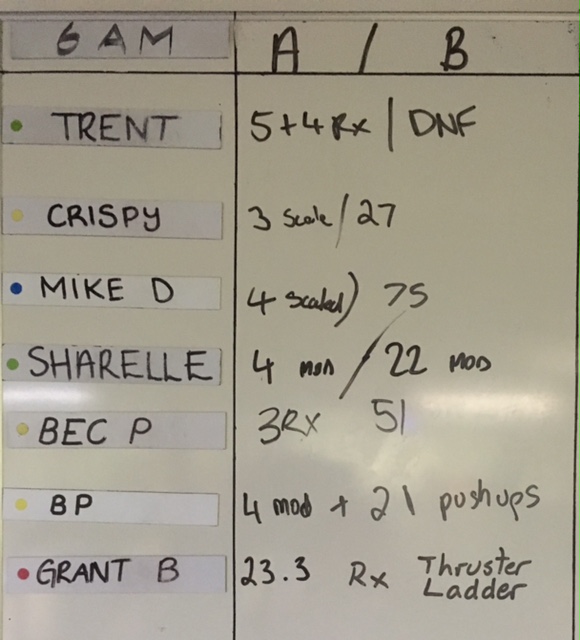 6 AM A / B
TRENT 5+4 Rx | DNF
CRISPY 3 Scale / 27
MIKE D 4 scaled) 75
SHARELLE 4 / 22 MOD
BEC P 3Rx 51
BP 4 mod + 21 pushups
GRANT B 23.3 Rx Thruster
Ladder